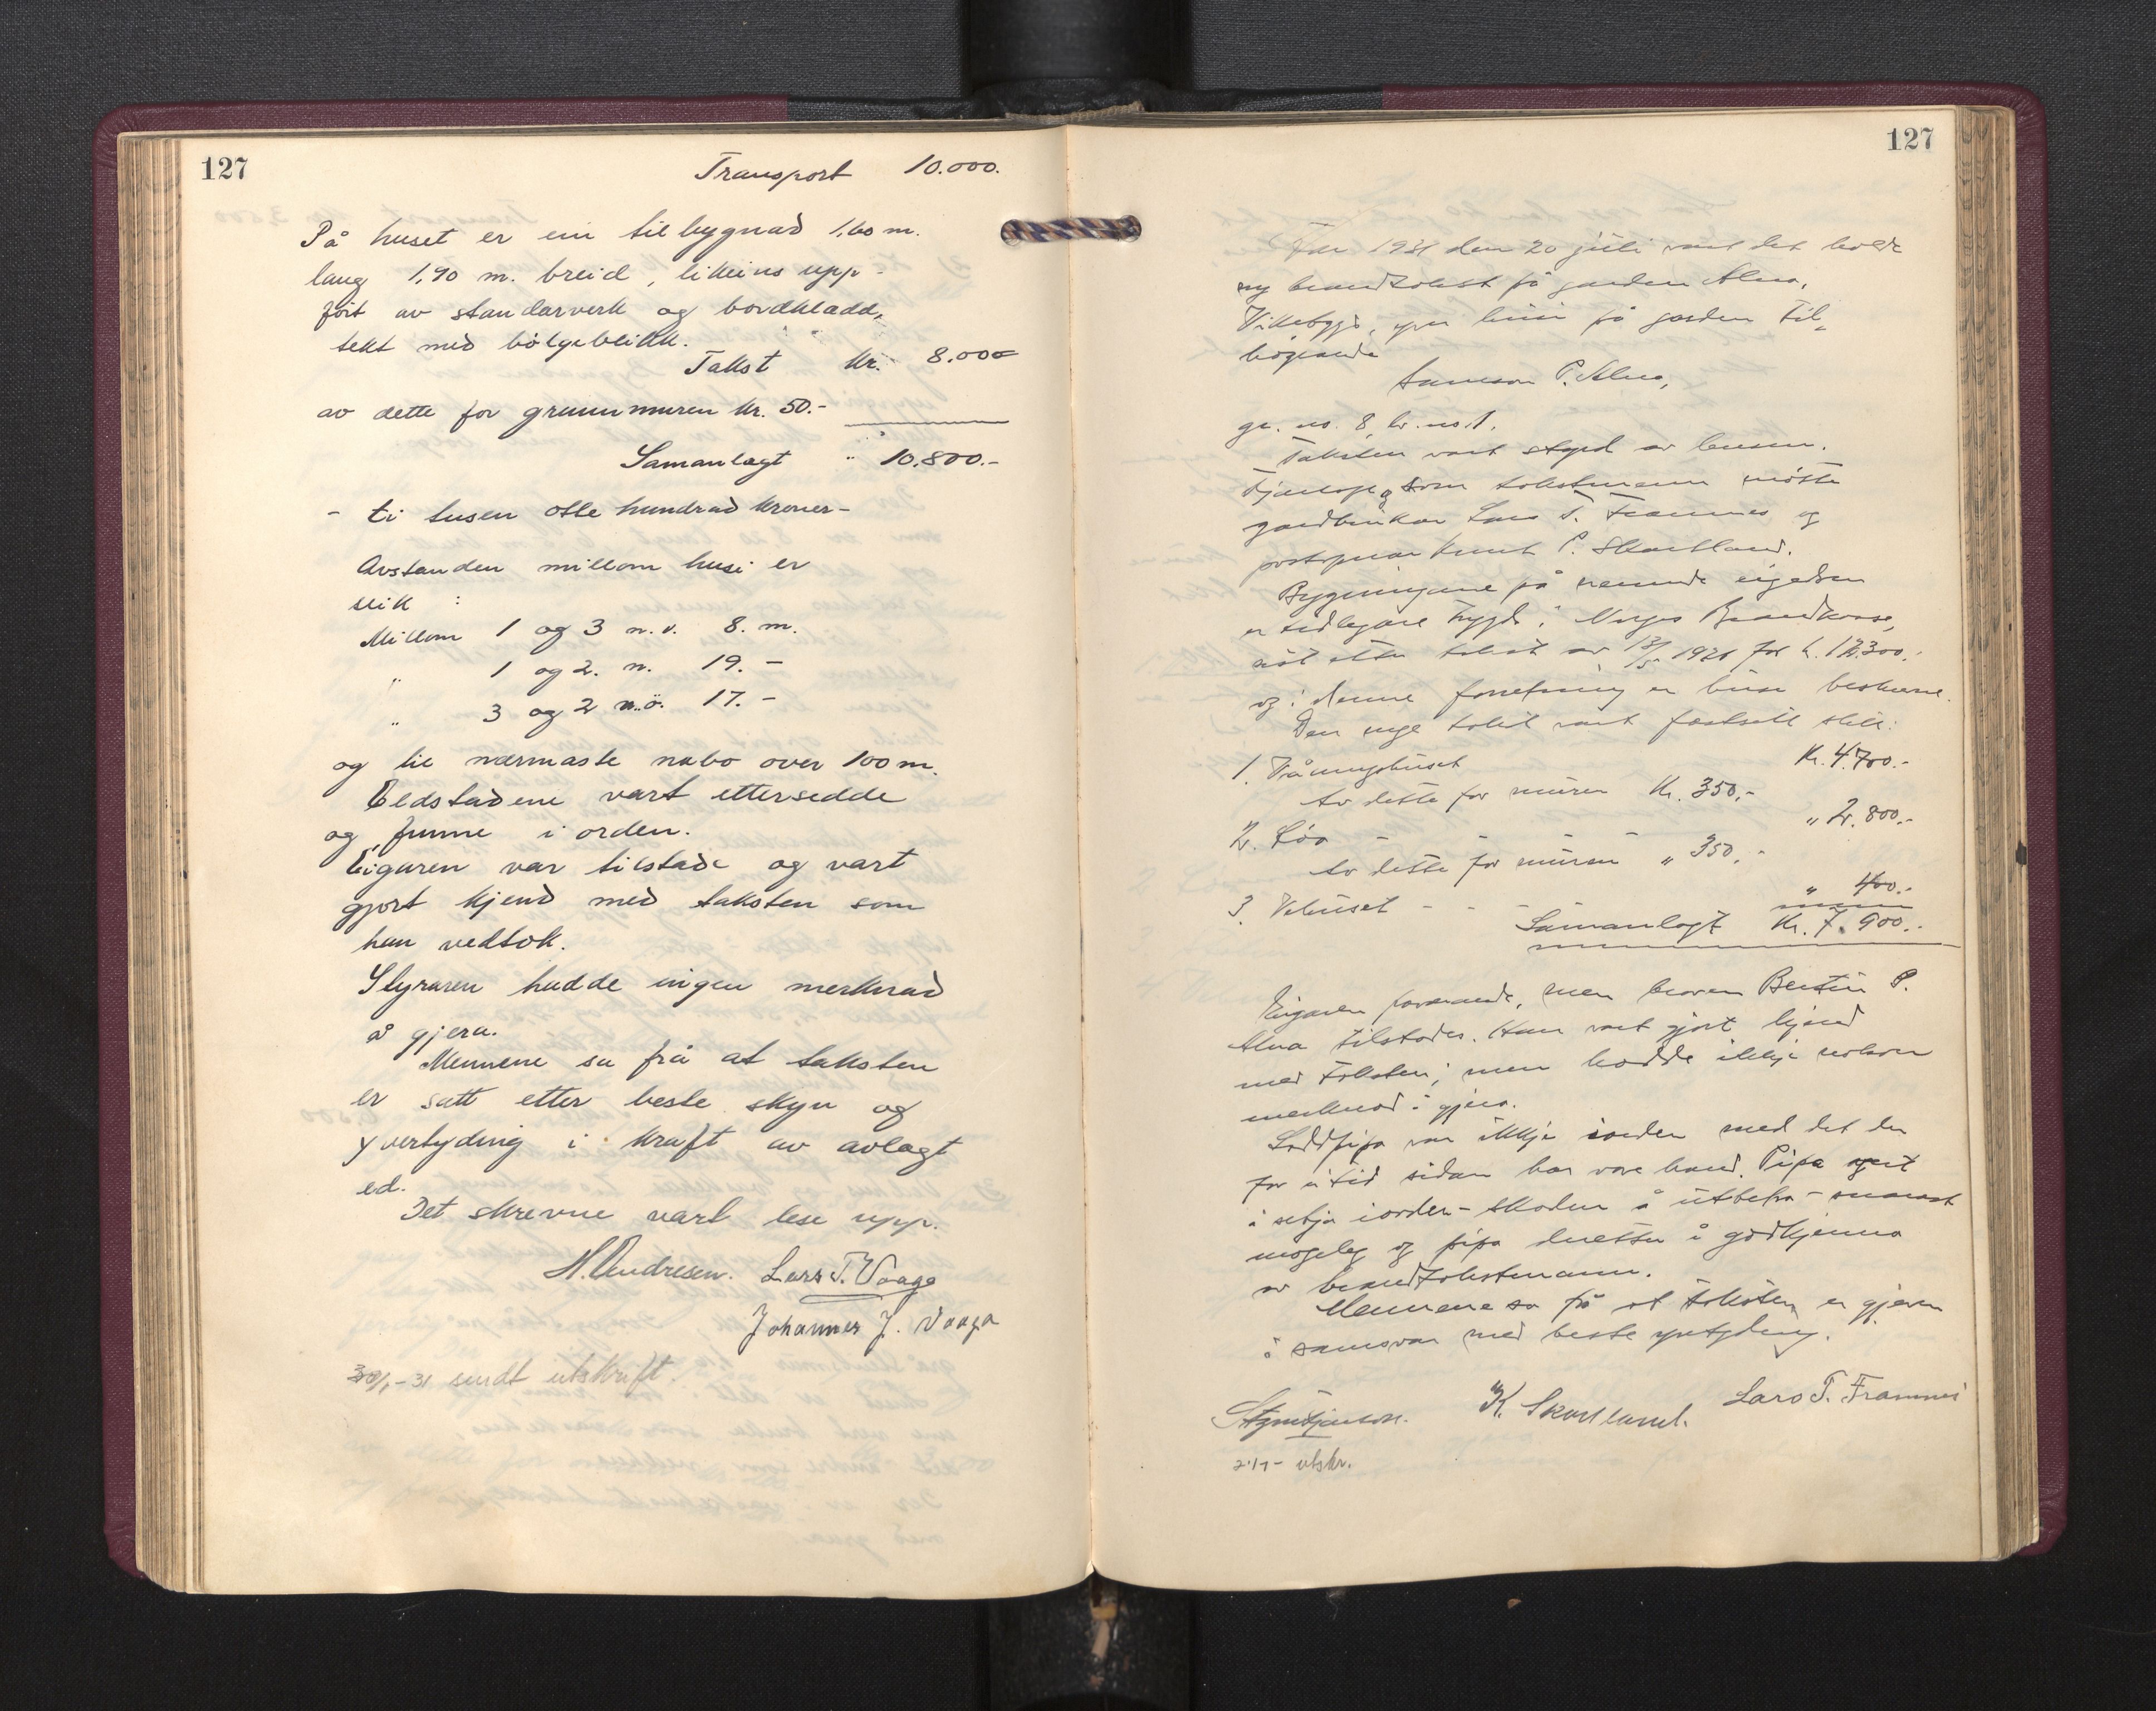 127
Transport 10.000.
På huset er ein tilbygnad 1,60 m.
lang 1,90 m. breid, likeins upp-
ført av standarverk og bordkladd,
tekt med bølgeblikk.
Takst kr. 800
av dette for grunnmuren kr. 50.-
Samanlagt " 10.800.-
- ti tusen otte hundrad kroner-
Avstanden millom husi er
slik :
Millom 1 og 3 n.v. 8. m.
" 1 og 2. n. 19. -
" 3 og 2 n.ö. 17. -
og til nærmaste nabo over 100 m.
Eldstadene vart ettersedde
og funne i orden.
Eigaren var tilstade og vart
gjort kjend med taksten som
han vedtok.
Styraren hadde ingen merknad
å gjera.
Mennene sa frå at taksten
er satt etter beste skyn og
yvertyding i kraft av avlagt
ed.
Det skrevne vart lese upp.
H. Andresen. Lars T. Vaage
Johannes J. Vaaga
30/1-31 sendt utskrift.
127
1931 den 20 juli vart det halde
ny brandtakst på garden Alna,
Vikebygd, yver husi på garden til-
høyrande
Samson P. Alna,
gr. no. 8 br. no 1.
Taksten vart styrd av lensm.
og som takstmenn møtte
gardbrukar Lars T. Framnes og
postopnar Knut P. Skartland.
Bygningane på nemnde eigedom
er tidlegare trygda i Norges Brandkasse,
sist etter takst av 13/5 1920 for kr. 12.300.-
og i denne forretning er husi beskrevne.
Den nye takst vart fastsett slik:
1. Våningshuset Kr. 4.700.-
Av dette for muren Kr. 350,-
2. Løa - - - " 2.800.-
Av dette for muren " 350.-
3. Vehuset - - - " 400.-
Samanlagt Kr. 7.900.-
Eigaren fråverande, men broren Bertin P.
Alna tilstades. Han vart gjort kjend
med taksten; men hadde ikkje nokon
merknad å gjera.
pipa var ikkje iorden med det der
for ei tid sidan har vore brand. Pipa
å setja iorden - skaden å utbetra - snarast
mogeleg og pipa deretter å godkjenna
av brandtakstmann.
Mennene sa frå at taksten er gjeven
i samsvar med beste yvertyding.
K. Skartland. Lars T. Framnes
21/7- utskr.